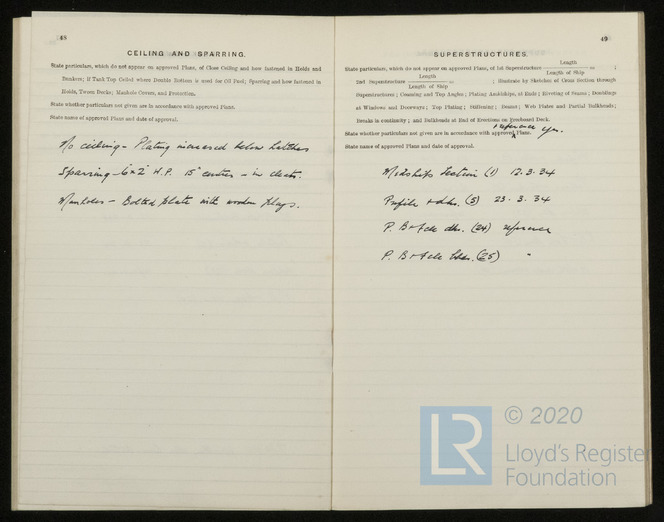 48
CEILING AND SPARRING.
State particulars, which do not appear on approved Plans, of Close Ceiling and how fastened in Holds and
Bunkers; if Tank Top Coiled where Double Bottom is used for Oil Fuel; Sparring and how fastened in
Holds, Tween Decks; Manhole Covers, and Protection.
State whether particulars not given are in accordance with approved Plans.
State name of approved Plans and date of approval.
No ceiling - Plating increased below hatches
Sparring - 6 x 2" W.P. 15" centres - in cleats.
Manholes - Bolted plate with wooden plugs.
49
SUPERSTRUCTURES.
State particulars, which do not appear on approved Plans, of 1st Superstructure Length / Length of Ship = ;
2nd Superstructure Length / Length of Ship = ; illustrate by Sketches of Cross Section through
Superstructures; Coaming and Top Angles; Plating Amidships, at Ends; Riveting of Seams; Doublings
at Windows and Doorways; Top Plating; Stiffening; Beams; Web Plates and Partial Bulkheads;
Breaks in continuity; and Bulkheads at End of Erections on Freeboard Deck.
State whether particulars not given are in accordance with approved & reference Plans. yes.
State name of approved Plans and date of approval.
Midships Section (1) 12.3.34
Profile & dks. (5) 23.3.34
P. B & Fcle dks. (24) reference
P. B & Fcle bhds. (25) "
LR
© 2020
Lloyd's Register
Foundation